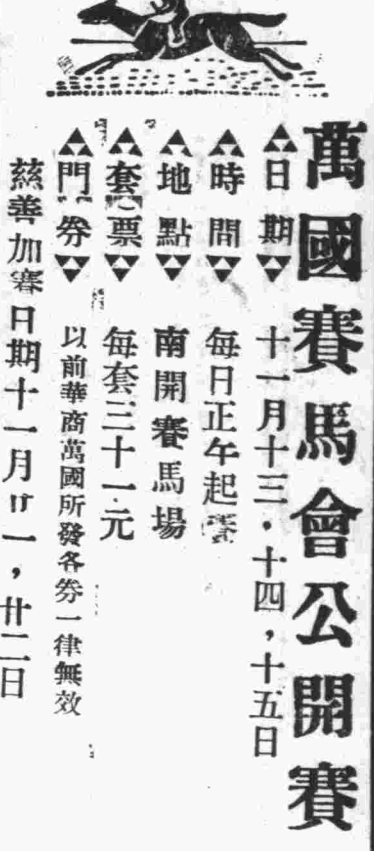 萬國賽馬會公開賽
日期 十一月十三·十四,十五日
時間 每日正午起賽
地點 南開賽馬場
套票 每套三十一元
門券 以前華商萬國所發各券一律無效
慈善加賽日期十一月廿一,廿二日